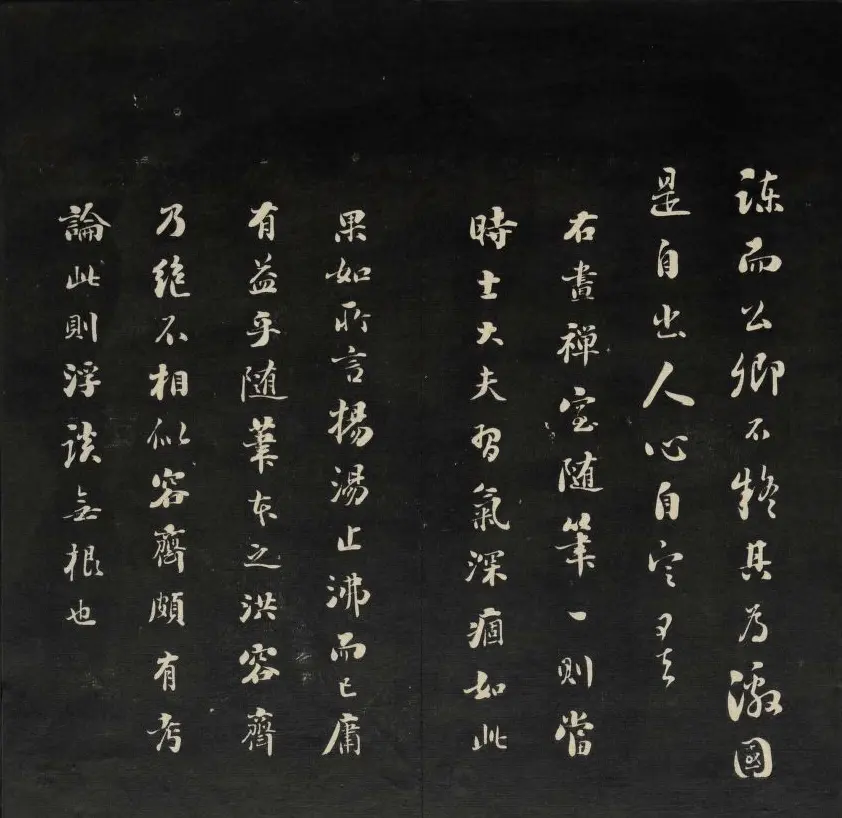 諫而公卿不疑其為激國
是自出人心自定矣
右畫禪室随筆一則當
時士大夫習氣深痼如此
果如所言揚湯止沸而已庸
有益乎随筆本之洪容齋
乃絶不相似容齋頗有考
論此則浮談無根也